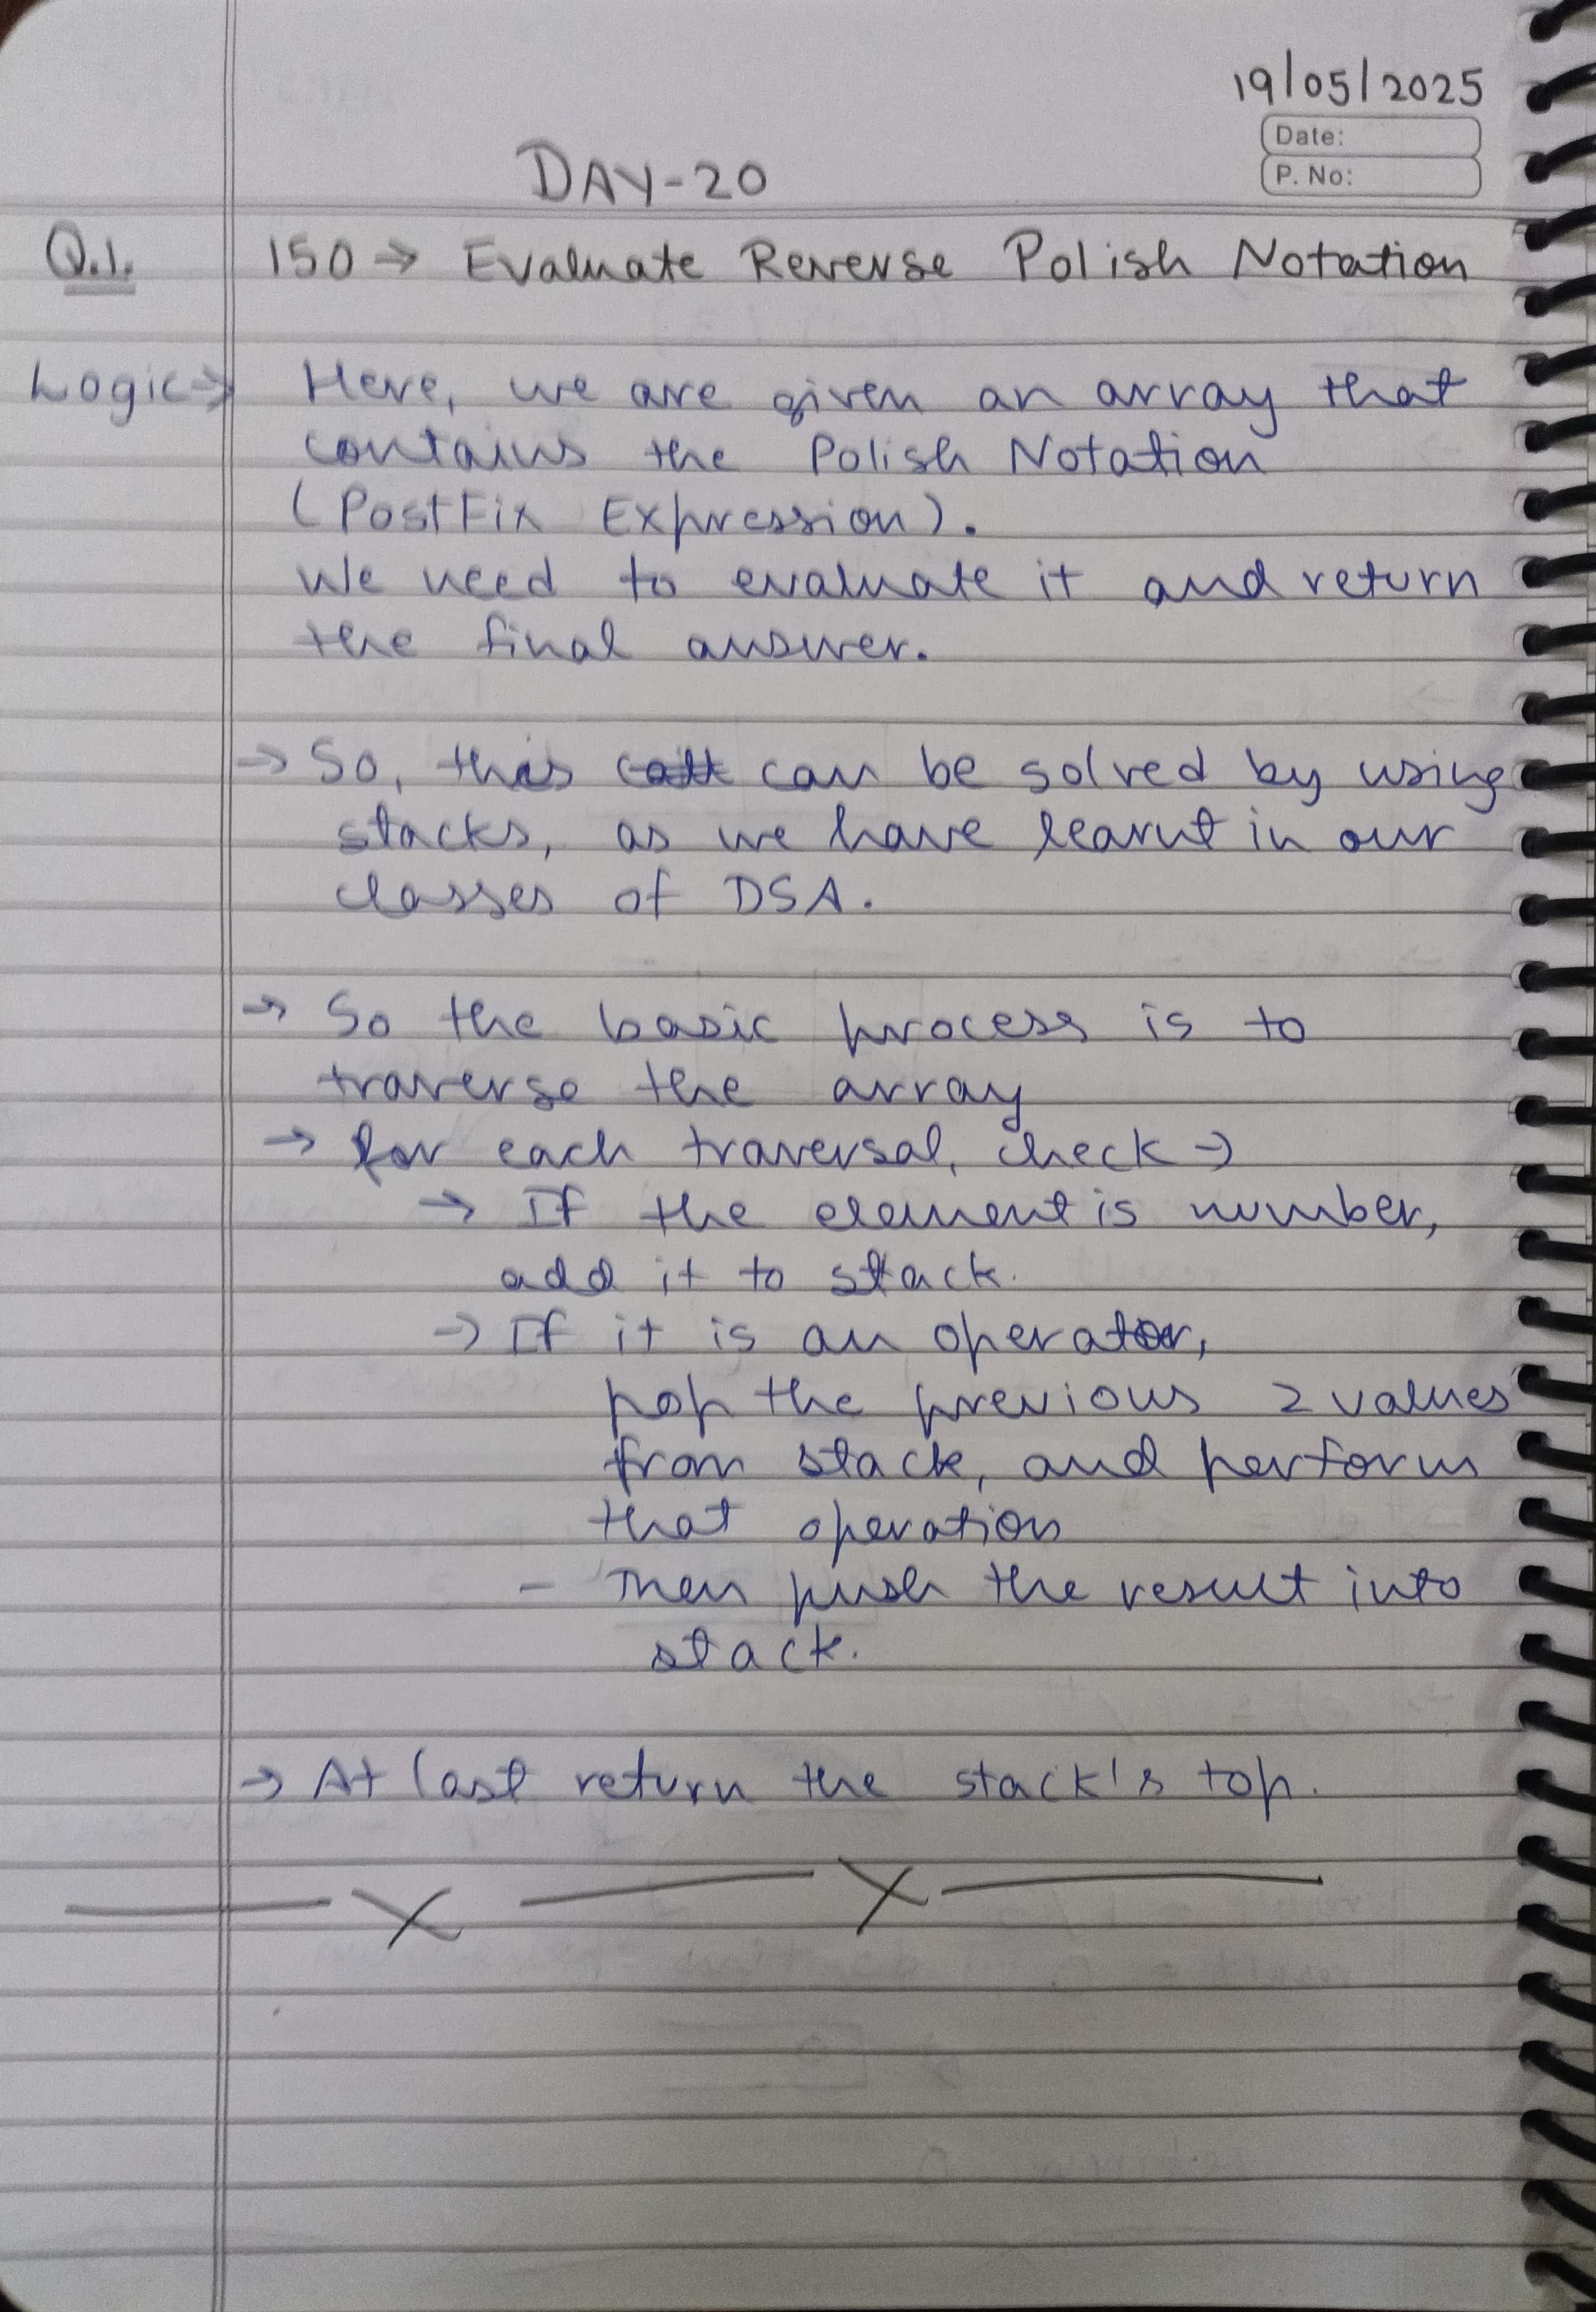 19/05/2025
Date:
P. No:
DAY-20
Q.1. 150 → Evaluate Reverse Polish Notation
Logic → Here, we are given an array that
contains the Polish Notation
(PostFix Expression).
We need to evaluate it and return
the final answer.
→ So, this can be solved by using
stacks, as we have learnt in our
classes of DSA.
→ So the basic process is to
traverse the array
→ for each traversal, check →
→ If the element is number,
add it to stack.
→ If it is an operator,
pop the previous 2 values
from stack, and perform
that operation
- Then push the result into
stack.
→ At last return the stack's top.